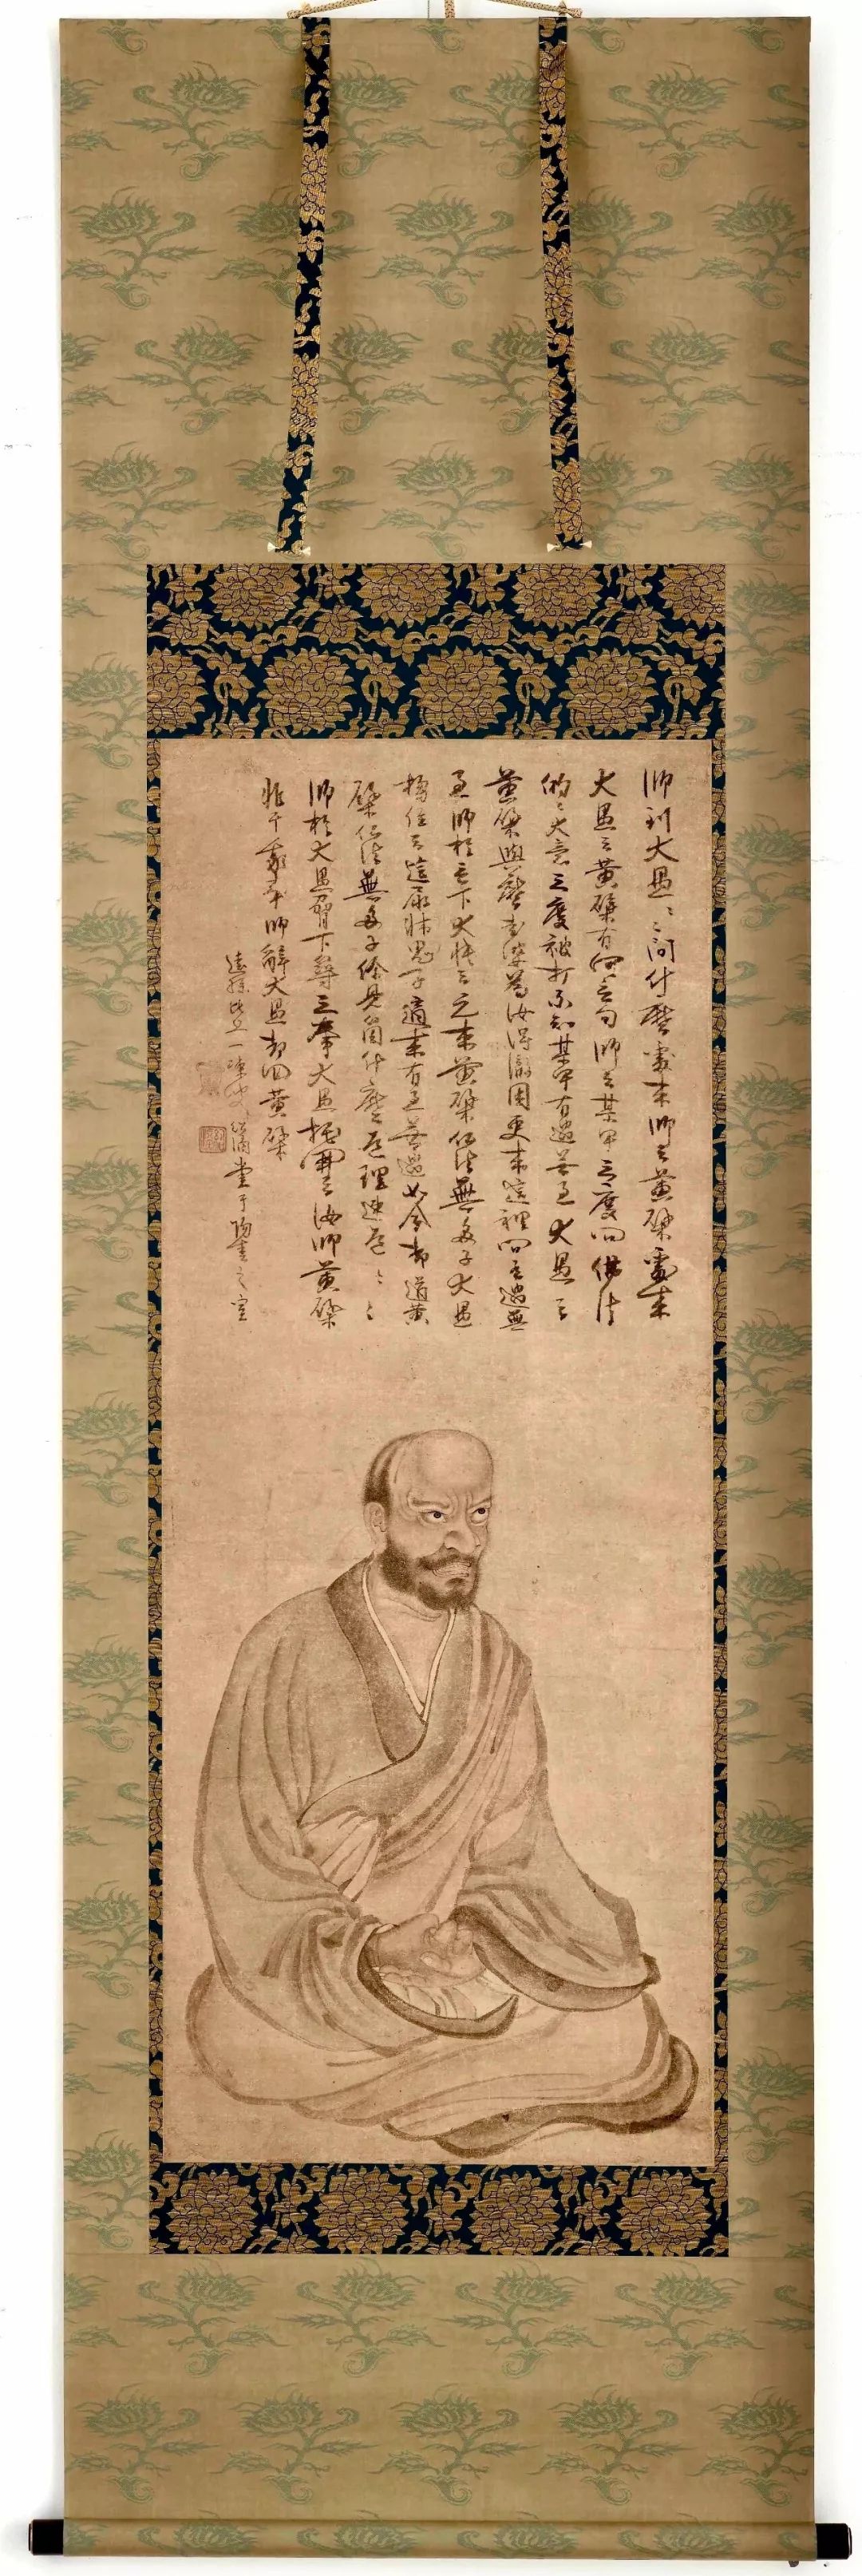 師到大愚〻問什麼處来師云黄檗處来
大愚云黄檗有何言句師云某甲三度問佛法
的〻大意三度被打不知某甲有過無過大愚云
黄檗與麼老婆為汝得徹困更来這裡問有過無
過師於言下大悟云元来黄檗仏法無多子大愚
搊住云這尿牀鬼子適来有過無過如今却道黄
檗仏法無多子你見箇什麼道理速道〻〻
師於大愚脅下築三拳大愚拓開云汝師黄檗
非干我事師辭大愚却回黄檗
遠孫比丘一凍叟紹滴書于陽春之室